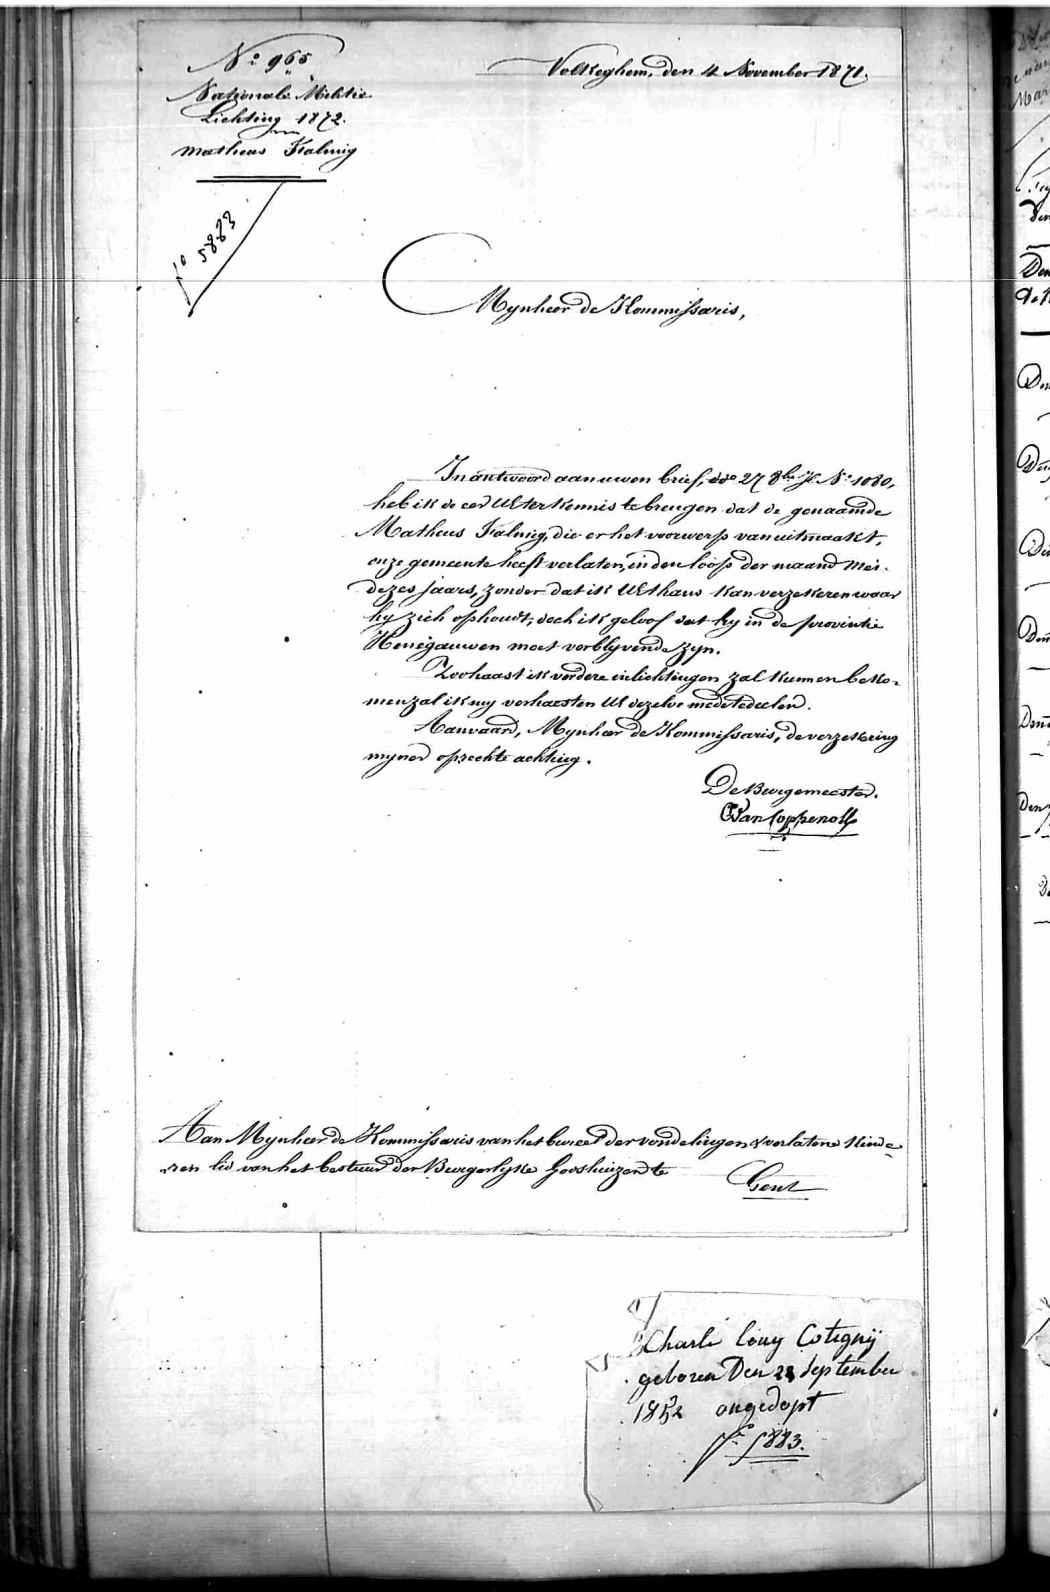 No 965
Nationale Militie
Lichting 1872.
Matheus Falmig
fo 5883
Volkeghem, den 4 November 1871.
Mynheer de Kommissaris,
In antwoord aan uwen brief, ddo 27 8ber Jl. No 1080,
heb ik de eer UE ter kennis te brengen dat de genaamde
Matheus Falmig, die er het voorwerp van uitmaakt,
onze gemeente heeft verlaten, in den loop der maand Mei
dezes jaars, zonder dat ik UE thans kan verzekeren waar
hy zich ophoudt, doch ik geloof dat hy in de provintie
Henegauwen moet verblyvende zyn.
Zoohaast ik verdere inlichtingen zal kunnen beko-
men zal ik my verhaesten UE dezelve mede te deelen.
Aanvaard, Mynheer de Kommissaris, de verzekering
myner oprechte achting.
De Burgemeester.
Van Coppenolle
Aan Mynheer de Kommissaris van het bureel der vondelingen & verlatene kinde-
ren lid van het bestuur der Burgerlyke Godshuizen te
Gent
Charle Louy Cotigny
geboren Den 28 September
1852 ongedopt
fo 5883.